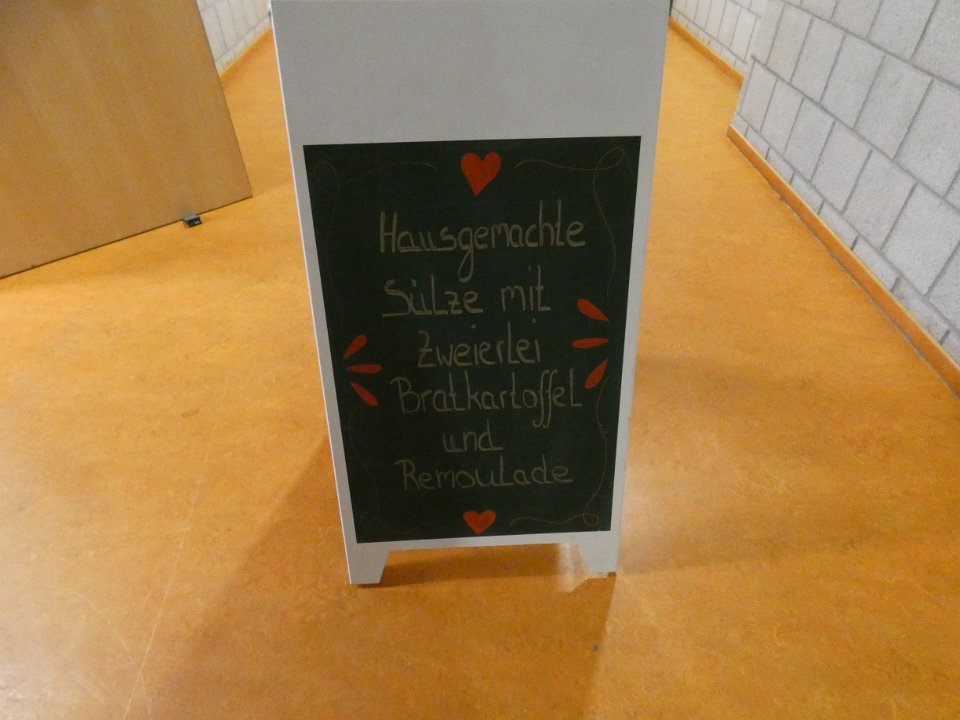 Hausgemachte
Sülze mit
Zweierlei
Bratkartoffel
und
Remoulade